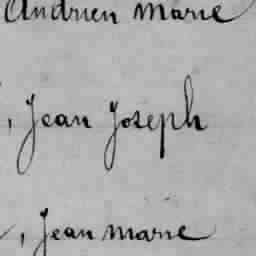 Andrien Marie
, Jean Joseph
, Jean Marie